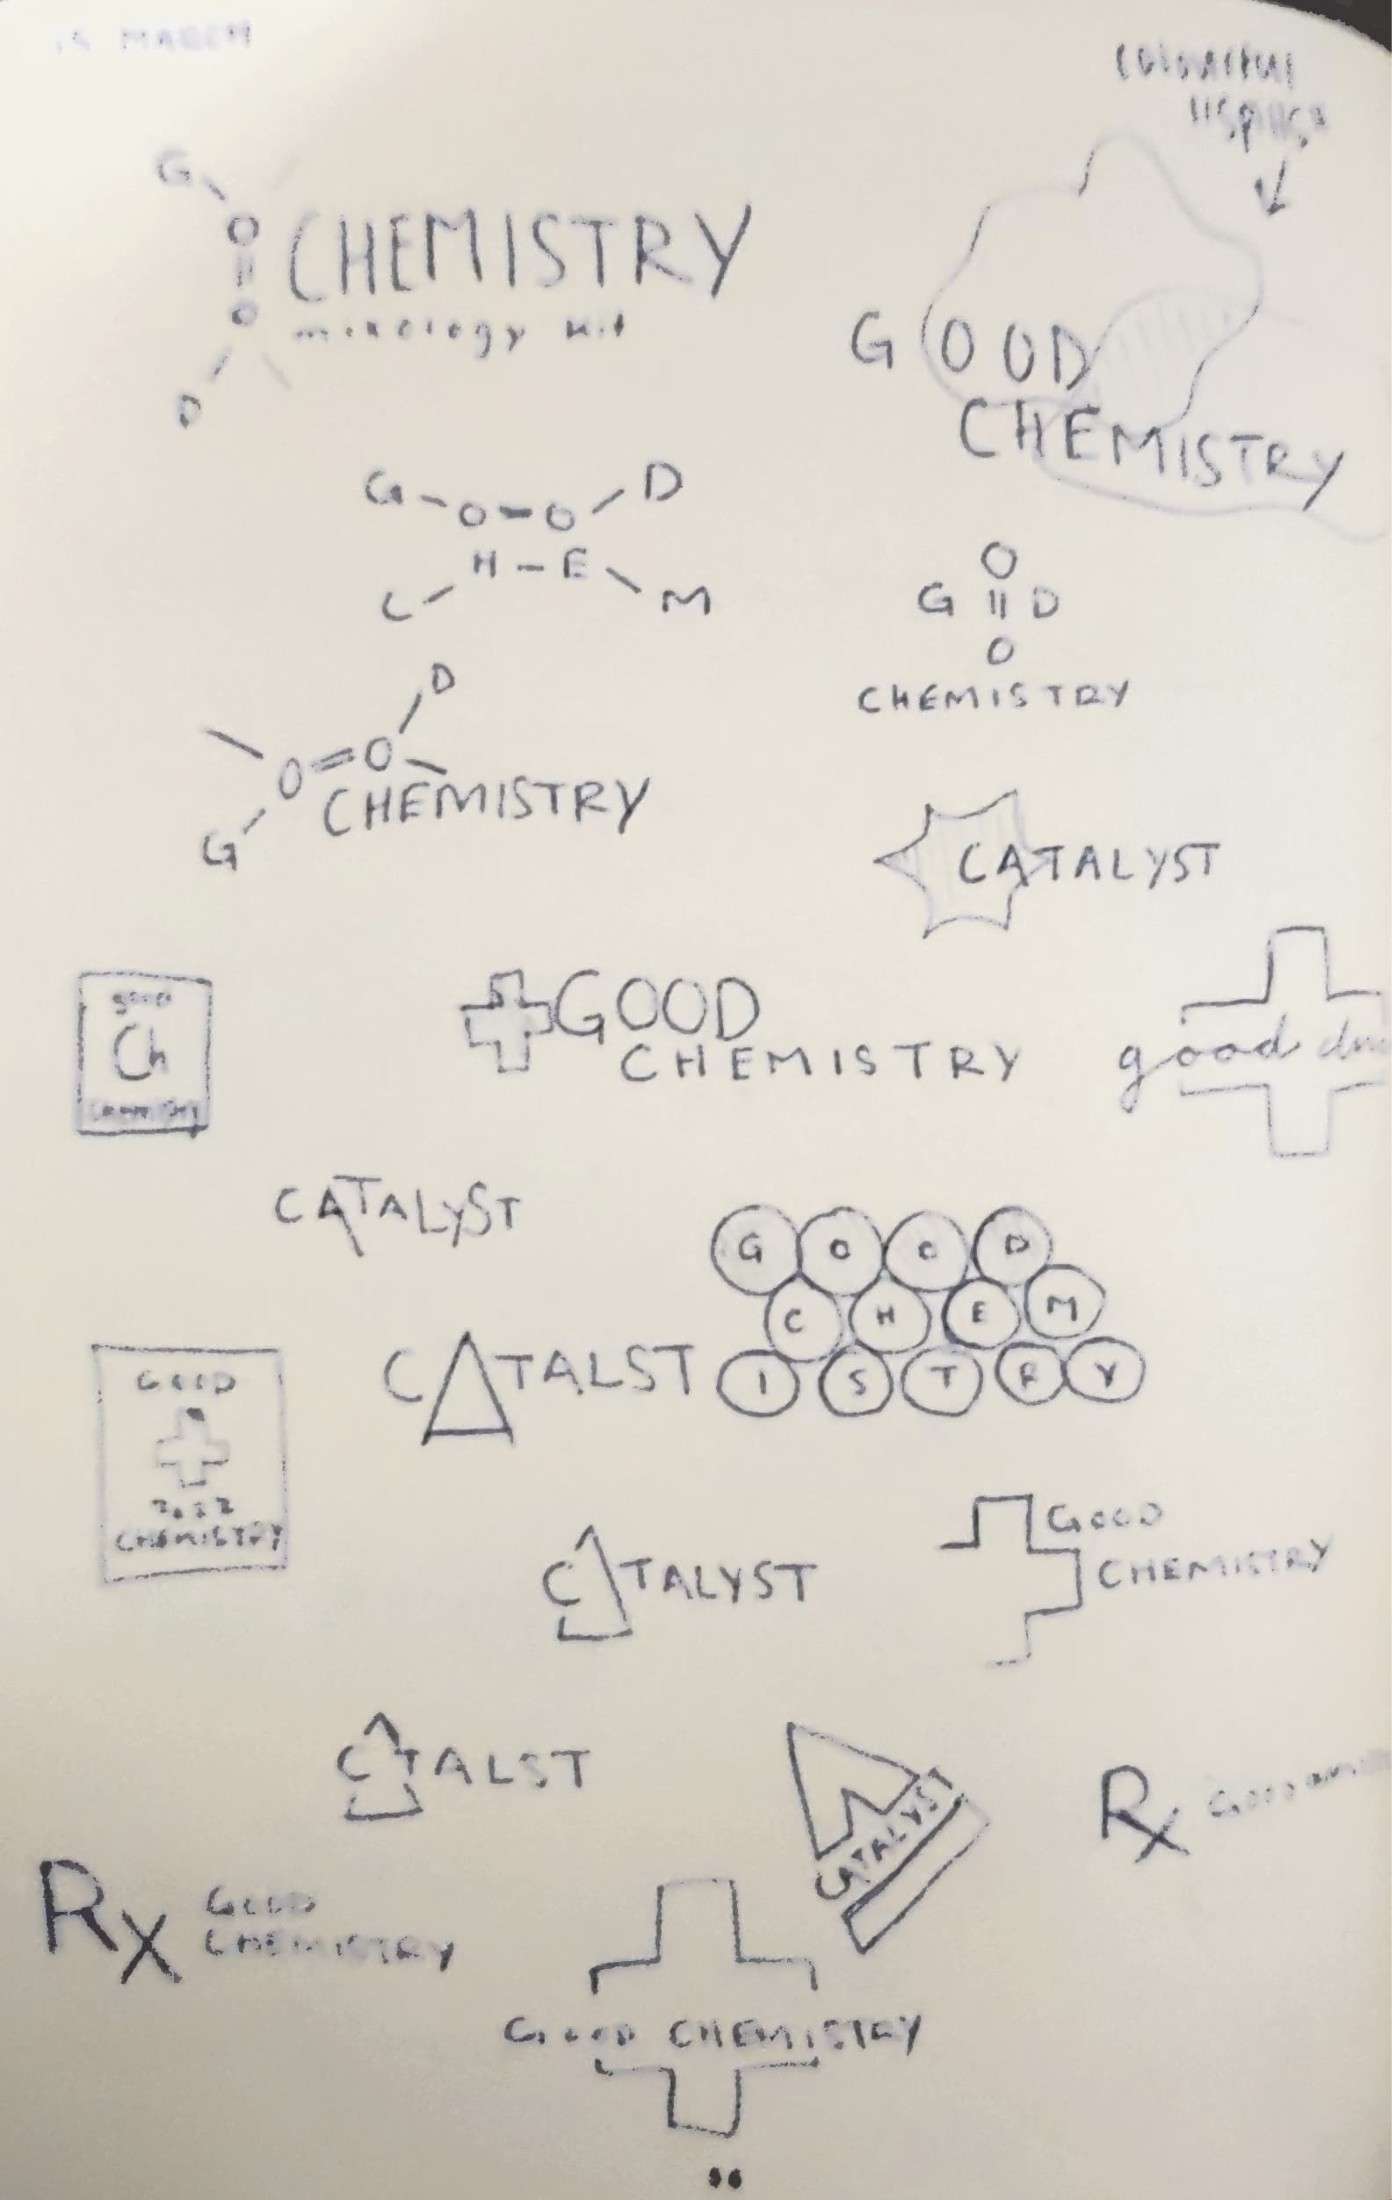 15 MARCH
colourful
G
O
O
D
CHEMISTRY
mixology kit
GOOD
CHEMISTRY
G O O D
C H E M
G O O D
CHEMISTRY
G O O D
CHEMISTRY
CATALYST
good
Ch
CHEMISTRY
GOOD
CHEMISTRY
good
CATALYST
GOOD
CHEM
ISTRY
CATALST
GOOD
CHEMISTRY
CATALYST
GOOD
CHEMISTRY
CATALST
CATALYST
Rx GOOD
Rx GOOD
CHEMISTRY
GOOD CHEMISTRY